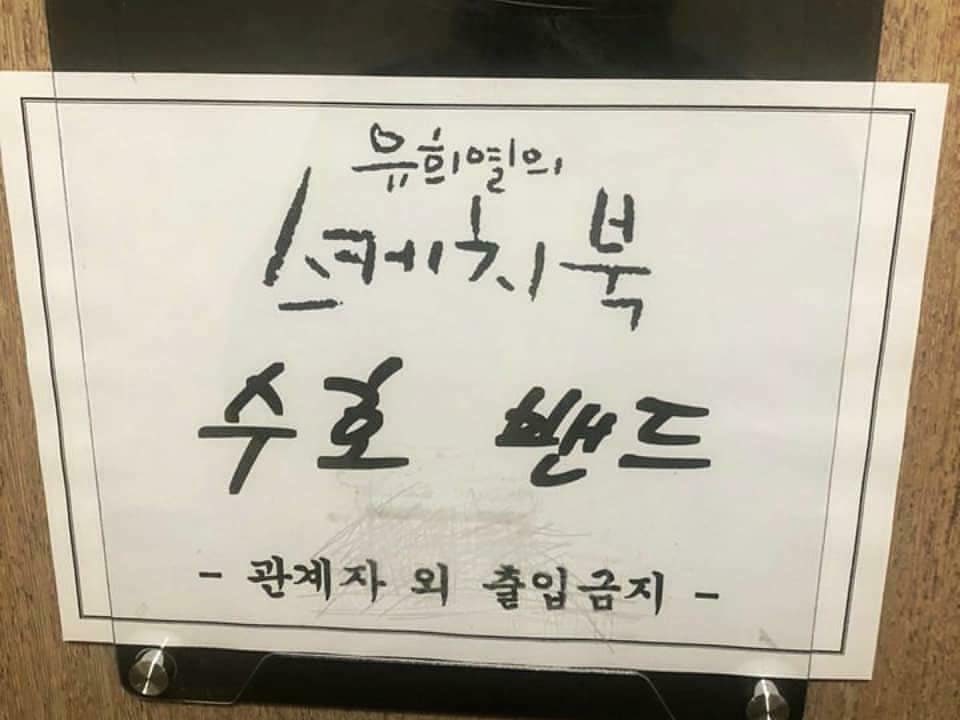 유희열의
스케치북
수호 밴드
- 관계자 외 출입금지 -